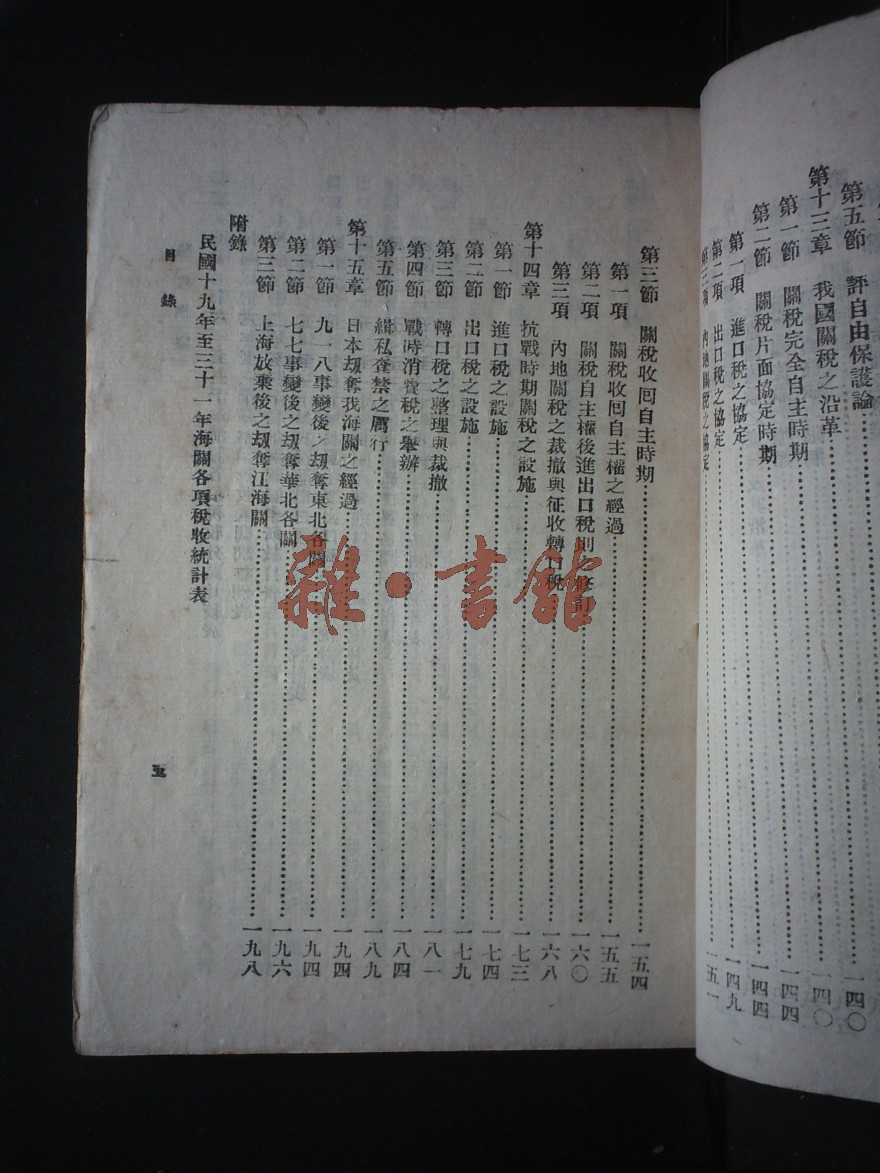 第五節　評自由保護論……一四〇
第十三章　我國關稅之沿革……一四〇
第一節　關稅完全自主時期……一四四
第二節　關稅片面協定時期……一四四
第一項　進口稅之協定……一四九
第二項　出口稅之協定
第三項　內地關稅之協定……一五一
第三節　關稅收回自主時期……一五四
第一項　關稅收回自主權之經過……一五五
第二項　關稅自主權後進出口稅則之修訂……一六〇
第三項　內地關稅之裁撤與征收轉口稅……一六八
第十四章　抗戰時期關稅之設施……一七三
第一節　進口稅之設施……一七四
第二節　出口稅之設施……一七九
第三節　轉口稅之整理與裁撤……一八一
第四節　戰時消費稅之舉辦……一八四
第五節　緝私查禁之厲行……一八九
第十五章　日本刼奪我海關之經過……一九四
第一節　九一八事變後之刼奪東北各關……一九四
第二節　七七事變後之刼奪華北各關……一九六
第三節　上海放棄後之刼奪江海關……一九八
附錄
民國十九年至三十一年海關各項稅收統計表
目錄
五
雜·書館